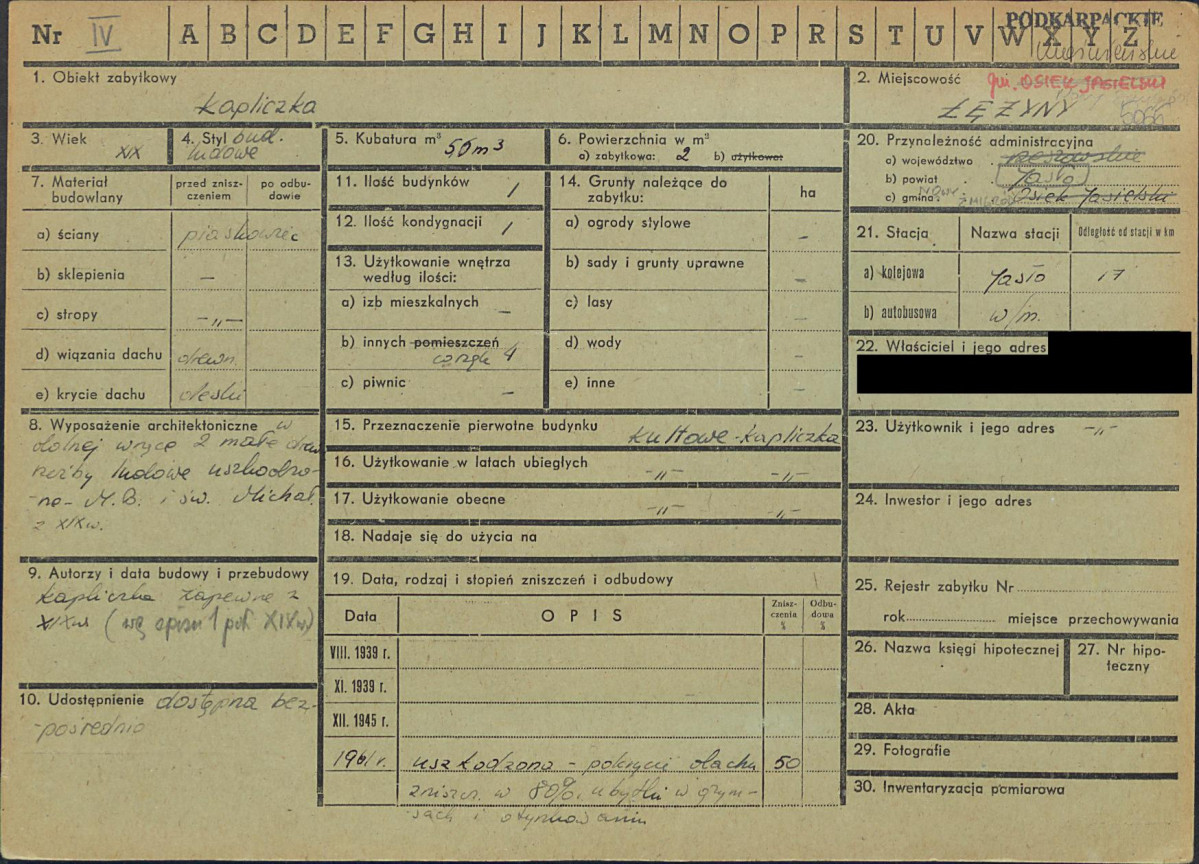 Nr IV A B C D E F G H I J K L M N O P R S T U V W X Y Z
PODKARPACKIE
1. Obiekt zabytkowy
Kapliczka
2. Miejscowość gm. OSIEK JASIELSKI
ŁĘŻYNY
3. Wiek
XIX
4. Styl bud.
ludowe
5. Kubatura m³ 50 m3
6. Powierzchnia w m²
a) zabytkowa: 2 b) użytkowa:
7. Materiał budowlany
przed zniszczeniem
po odbudowie
a) ściany piaskowiec
b) sklepienia —
c) stropy —„—
d) wiązania dachu drewn.
e) krycie dachu deski
8. Wyposażenie architektoniczne w
dolnej wnęce 2 małe drew
rzeźby ludowe uszkodzo-
ne - M.B. i św. Michał.
z XIXw.
9. Autorzy i data budowy i przebudowy
kapliczka zapewne z
XIXw (wg spisu 1 poł XIXw)
10. Udostępnienie dostępna bez-
-pośrednio
11. Ilość budynków 1
12. Ilość kondygnacji 1
13. Użytkowanie wnętrza
według ilości:
a) izb mieszkalnych –
b) innych pomieszczeń
4
c) piwnic –
14. Grunty należące do
zabytku:
ha
a) ogrody stylowe –
b) sady i grunty uprawne –
c) lasy –
d) wody –
e) inne –
15. Przeznaczenie pierwotne budynku Kultowe - Kapliczka
16. Użytkowanie w latach ubiegłych -„- -„-
17. Użytkowanie obecne -„- -„-
18. Nadaje się do użycia na
19. Data, rodzaj i stopień zniszczeń i odbudowy
Data
OPIS
Zniszczenia %
Odbudowa %
VIII. 1939 r.
XI. 1939 r.
XII. 1945 r.
1961 r. uszkodzona - pokrycie dachu 50
zniszcz. w 80%, ubytki w gzym-
-sach i otynkowaniu
20. Przynależność administracyjna
a) województwo rzeszowskie
b) powiat Jasło
c) gmina NOWY ŻMIGRÓD Osiek Jasielski
21. Stacja
Nazwa stacji
Odległość od stacji w km
a) kolejowa Jasło 17
b) autobusowa w/m.
22. Właściciel i jego adres
23. Użytkownik i jego adres -„-
24. Inwestor i jego adres
25. Rejestr zabytku Nr
rok miejsce przechowywania
26. Nazwa księgi hipotecznej
27. Nr hipo-
teczny
28. Akta
29. Fotografie
30. Inwentaryzacja pomiarowa